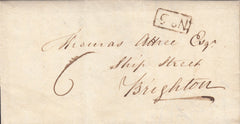 No 5
Thomas Attree Esqr
Ship Street
6
Brighton